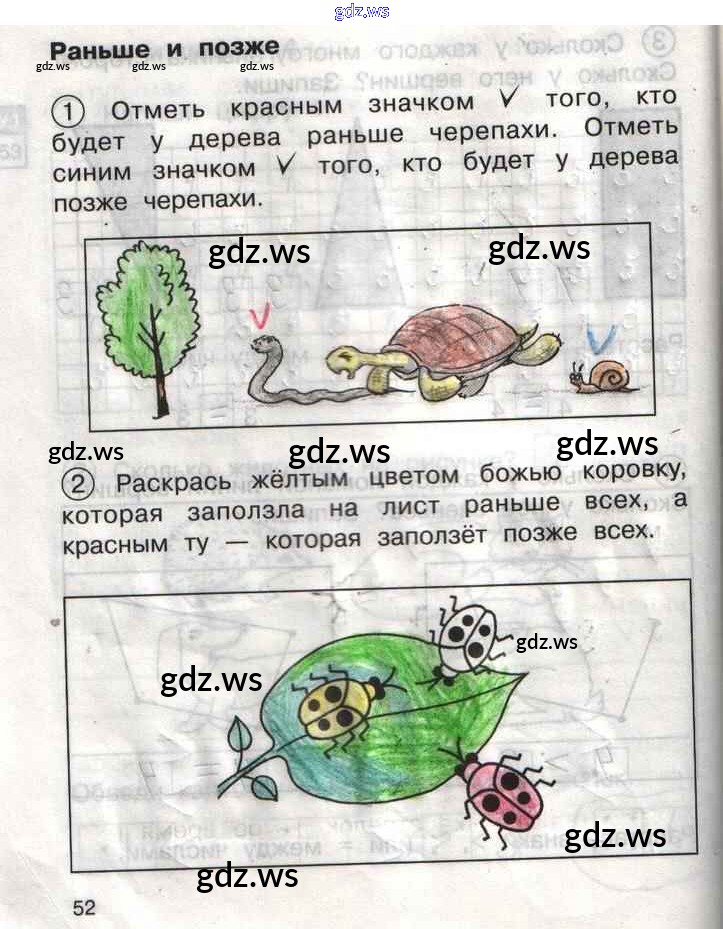 gdz.ws
Раньше и позже
gdz.ws gdz.ws gdz.ws
1 Отметь красным значком V того, кто
будет у дерева раньше черепахи. Отметь
синим значком V того, кто будет у дерева
позже черепахи.
gdz.ws gdz.ws
V
V
gdz.ws gdz.ws gdz.ws
2 Раскрась жёлтым цветом божью коровку,
которая заползла на лист раньше всех, а
красным ту — которая заползёт позже всех.
gdz.ws
gdz.ws
gdz.ws
gdz.ws
52